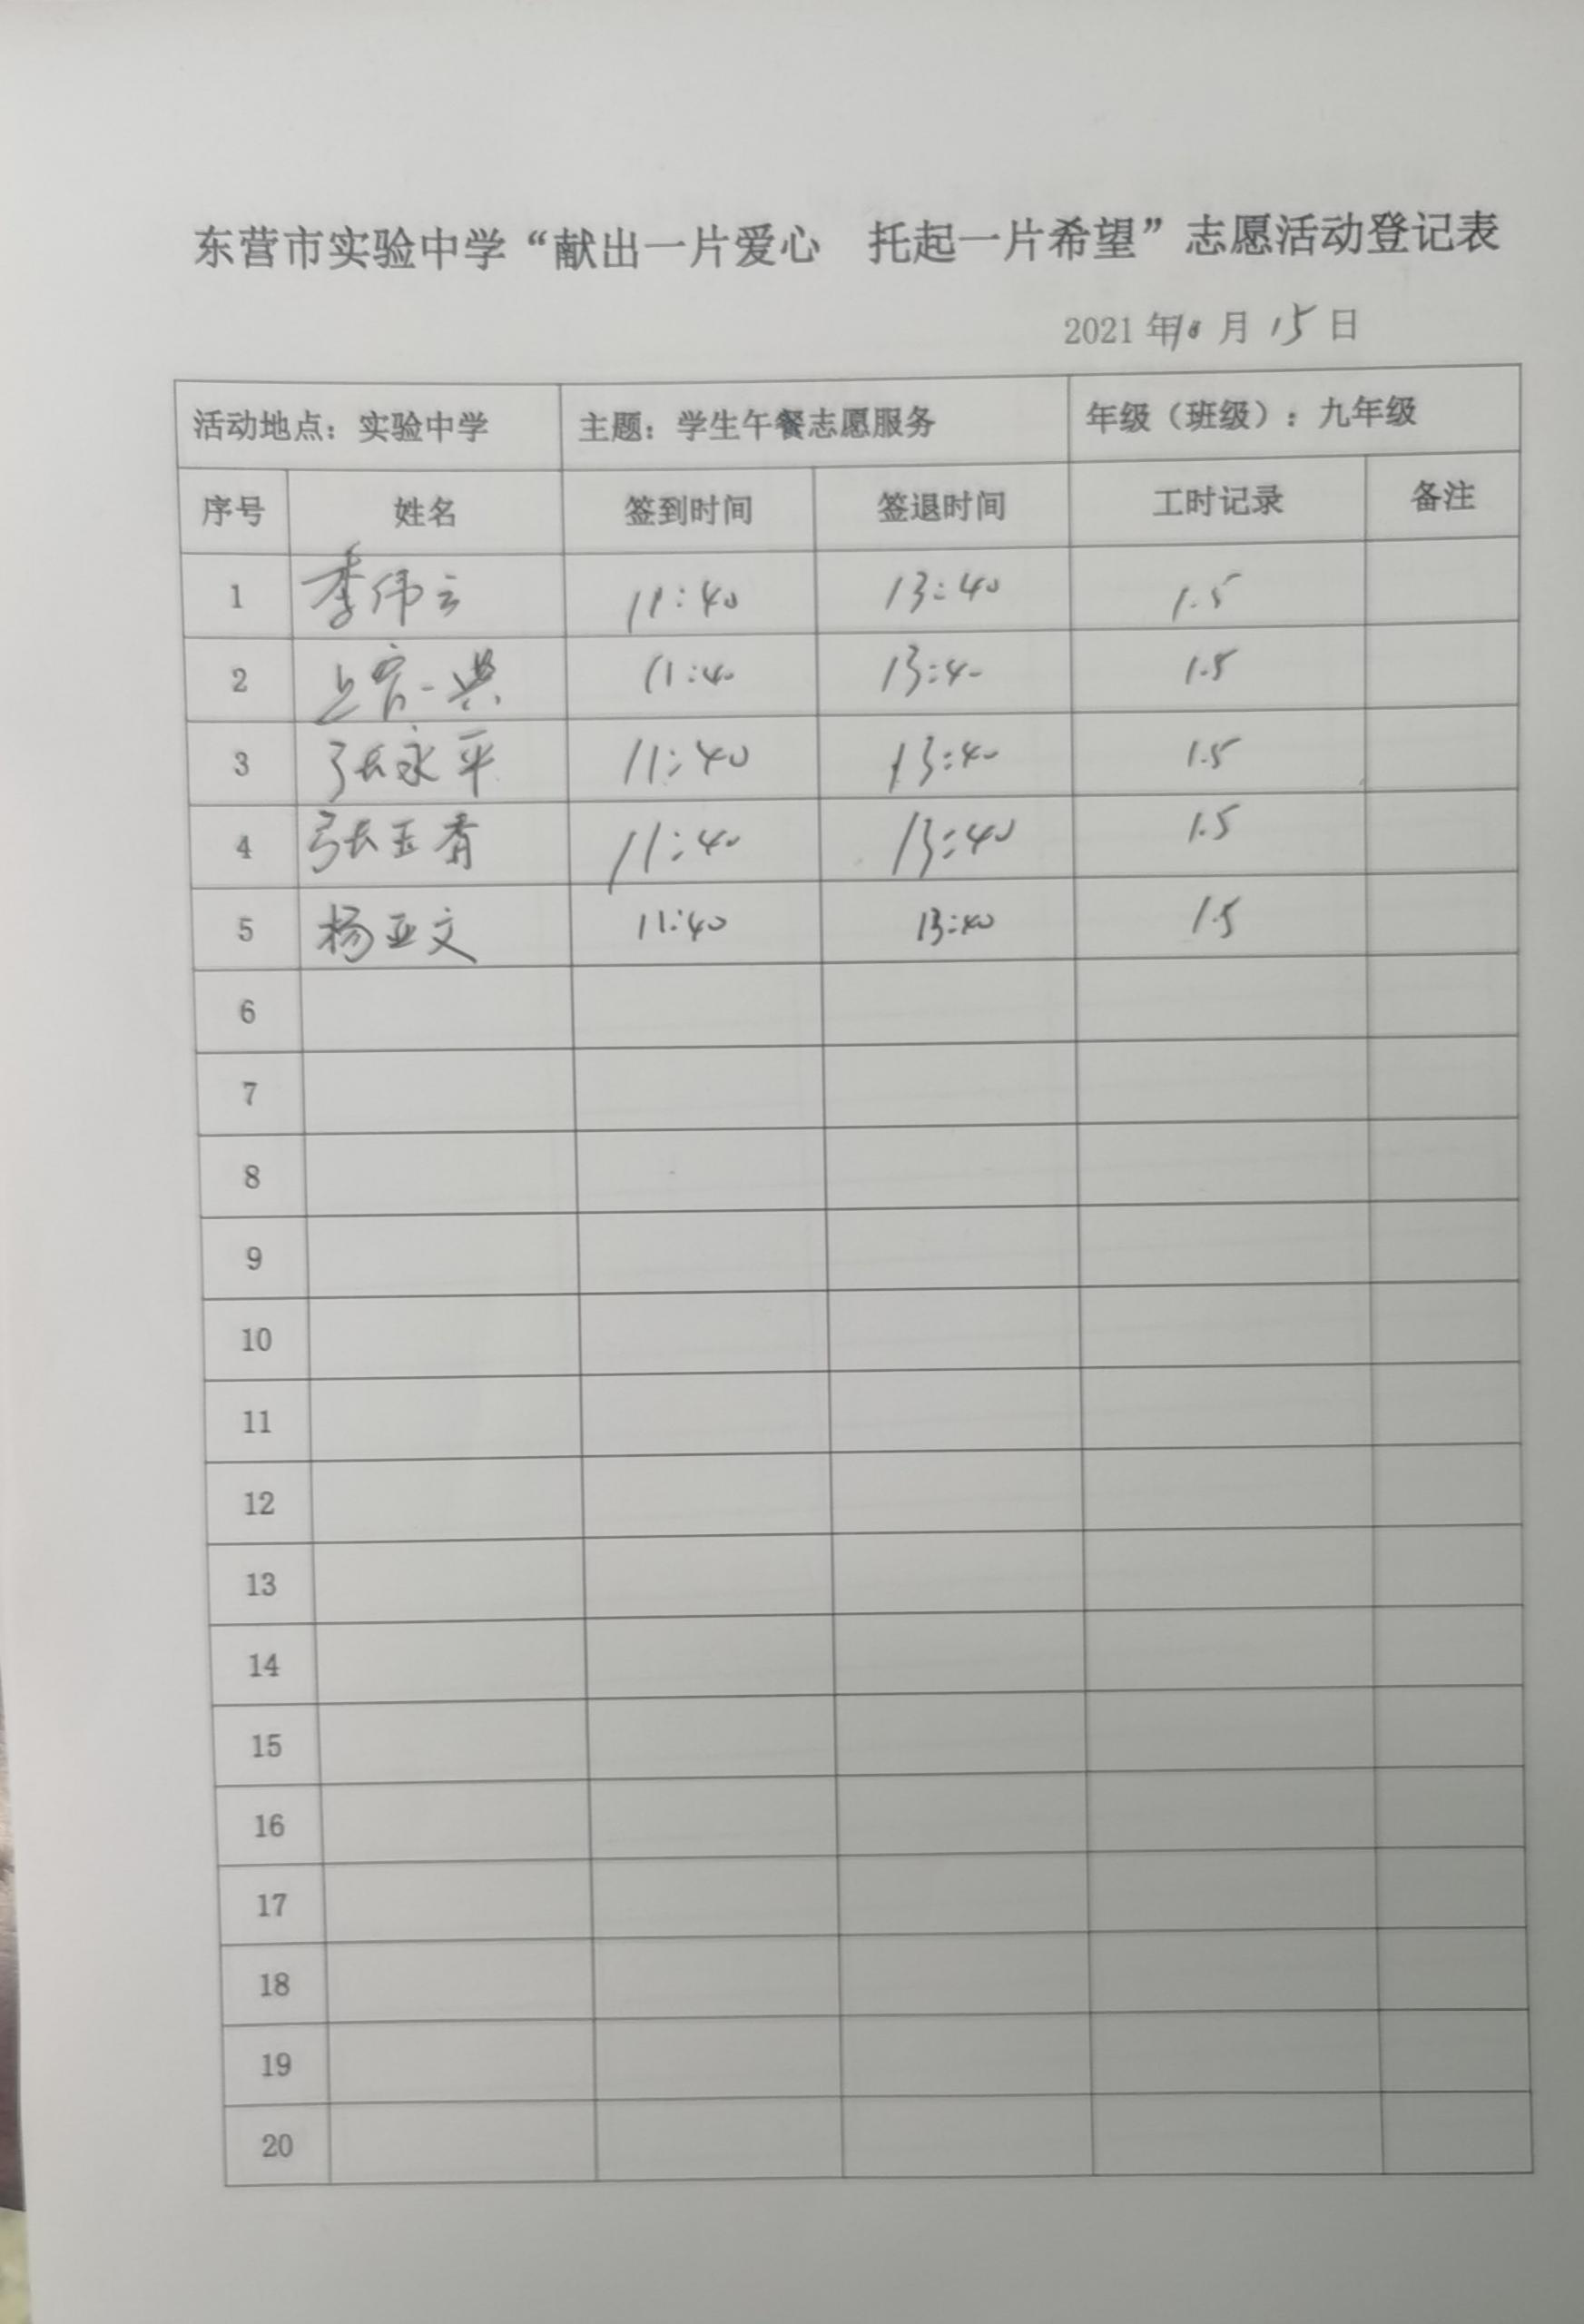 东营市实验中学“献出一片爱心 托起一片希望”志愿活动登记表
2021年10月15日
活动地点：实验中学 主题：学生午餐志愿服务 年级（班级）：九年级
序号 姓名 签到时间 签退时间 工时记录 备注
1 李伟云 11:40 13:40 1.5
2 上官一典 11:40 13:40 1.5
3 张永平 11:40 13:40 1.5
4 张玉青 11:40 13:40 1.5
5 杨亚文 11:40 13:40 1.5
6
7
8
9
10
11
12
13
14
15
16
17
18
19
20